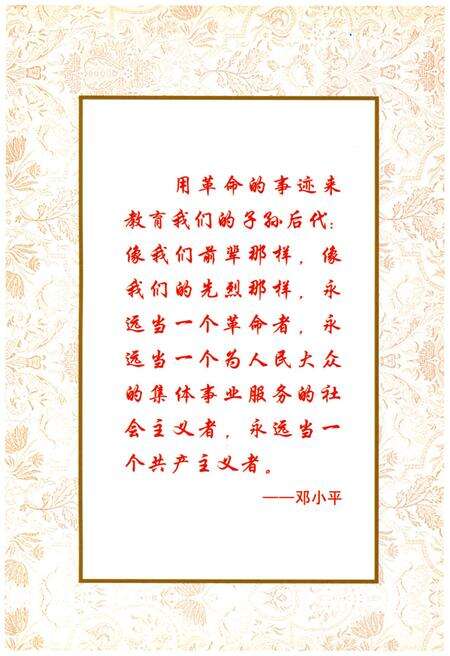 用革命的事迹来
教育我们的子孙后代：
像我们前辈那样，像
我们的先烈那样，永
远当一个革命者，永
远当一个为人民大众
的集体事业服务的社
会主义者，永远当一
个共产主义者。
——邓小平